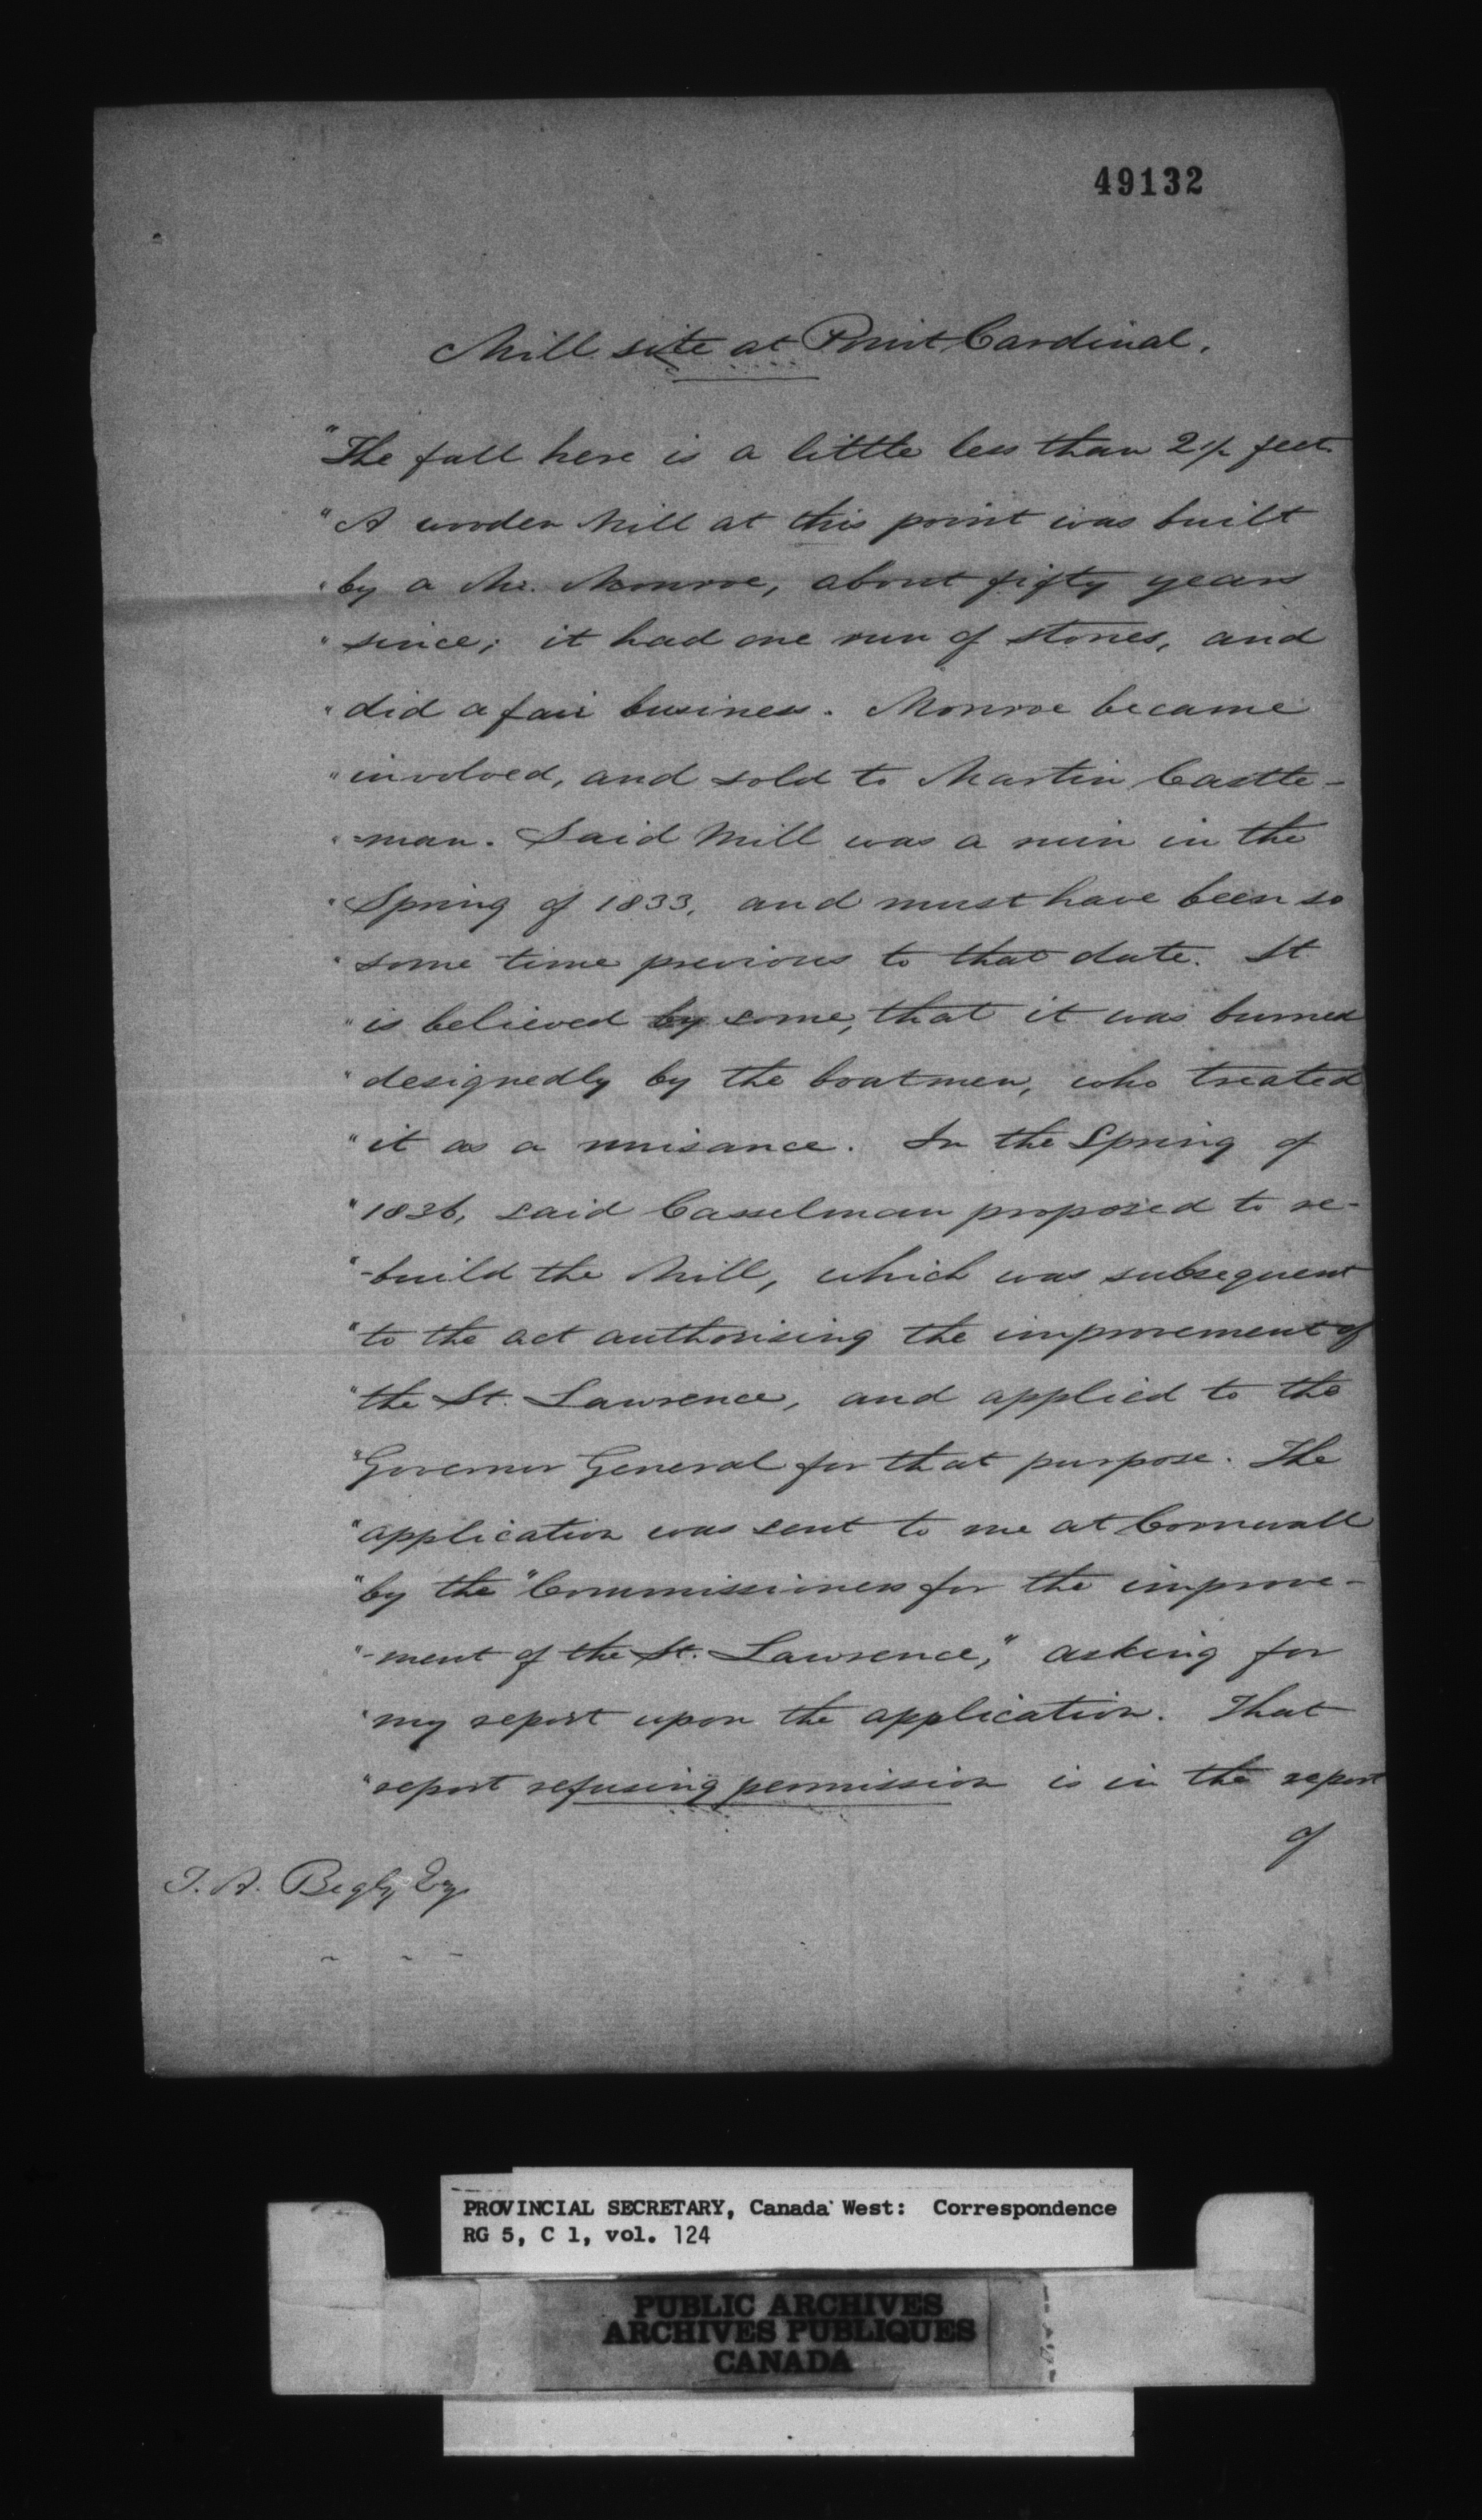 49132
Mill site at Point Cardinal.
"The fall here is a little less than 2½ feet.
"A wooden Mill at this point was built
"by a Mr. Monroe, about fifty years
"since; it had one run of stones, and
"did a fair business. Monroe became
"involved, and sold to Martin Castle-
"-man. Said Mill was a ruin in the
"Spring of 1833, and must have been so
"some time previous to that date. It
"is believed by some, that it was burned
"designedly by the boatmen, who treated
"it as a nuisance. In the Spring of
"1836, said Casselman proposed to re-
"-build the Mill, which was subsequent
"to the act authorising the improvement of
"the St. Lawrence, and applied to the
"Governor General for that purpose. The
"application was sent to me at Cornwall
"by the "Commissioners for the improve-
"-ment of the St. Lawrence," asking for
"my report upon the application. That
"report refusing permission is in the report
of
T. A. Begly Esq.
PROVINCIAL SECRETARY, Canada West: Correspondence
RG 5, C 1, vol. 124
PUBLIC ARCHIVES
ARCHIVES PUBLIQUES
CANADA